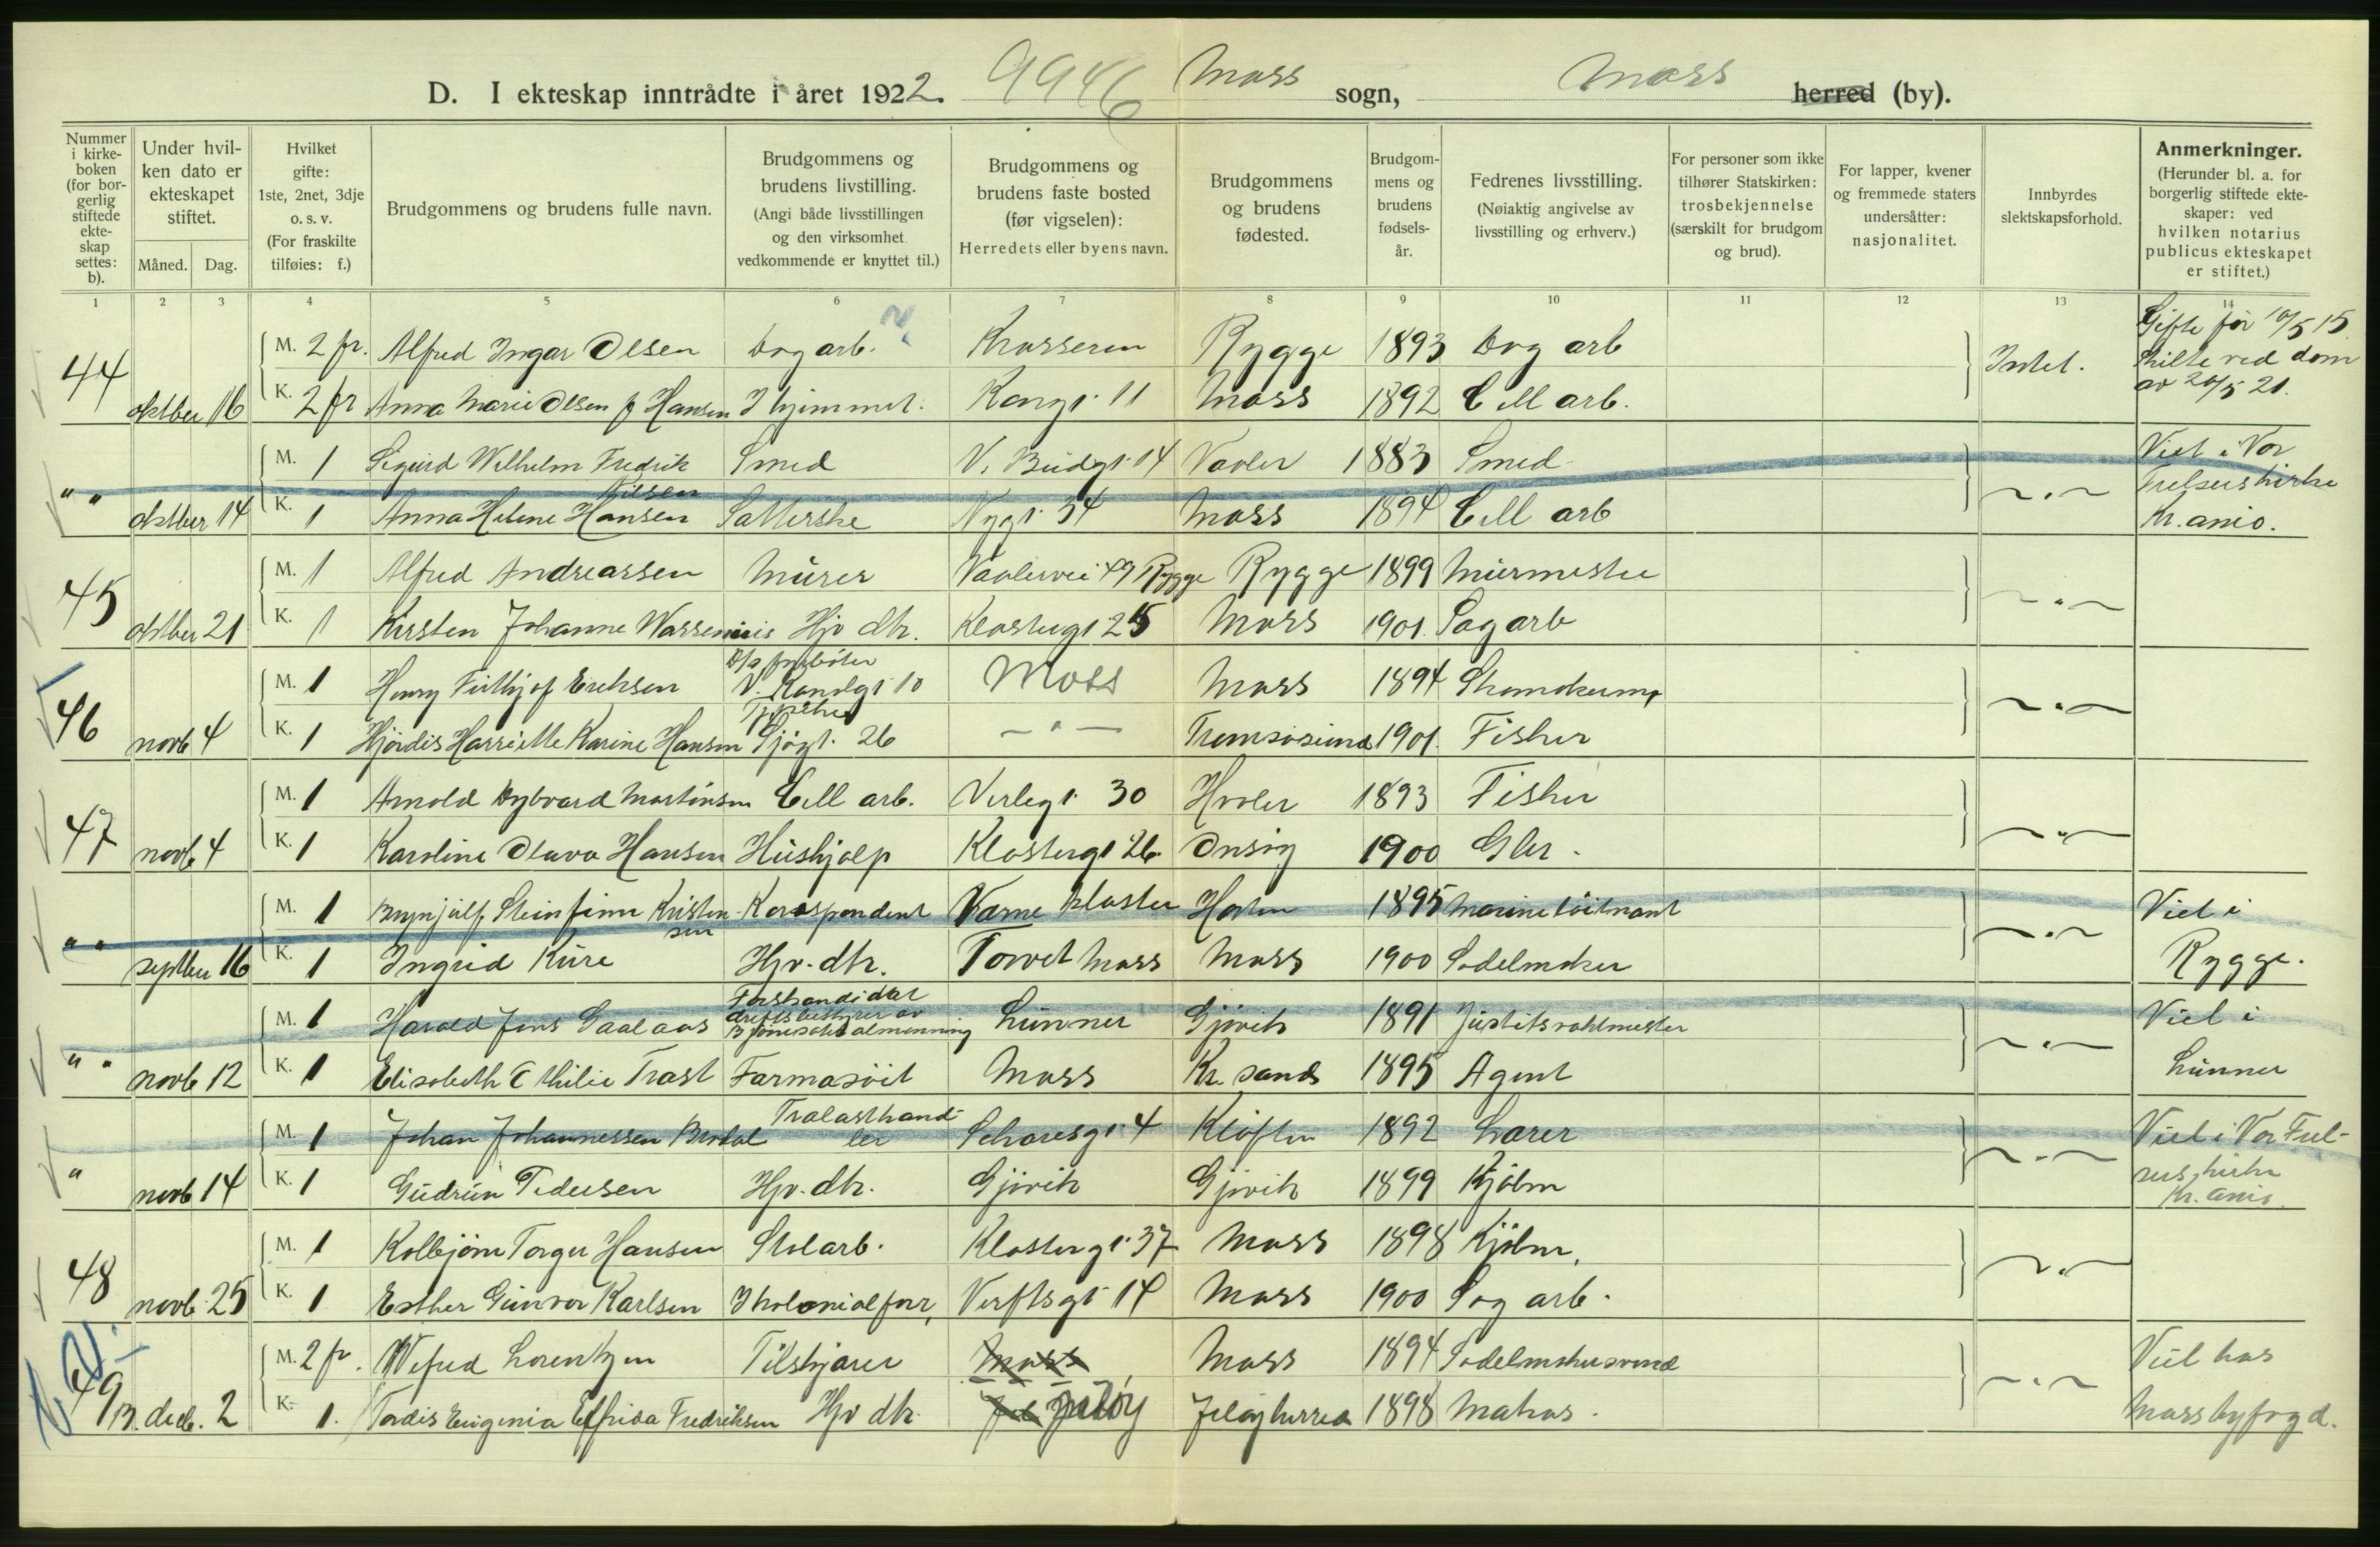 D. I ekteskap inntrådte i året 1922. 9946 Moss sogn, Moss herred (by).
Nummer i kirkeboken (for borgerlig stiftede ekteskap settes: b).
Under hvilken dato er ekteskapet stiftet.
Måned. Dag.
Hvilket gifte: 1ste, 2net, 3dje o. s. v. (For fraskilte tilføies: f.)
Brudgommens og brudens fulle navn.
Brudgommens og brudens livstilling. (Angi både livsstillingen og den virksomhet vedkommende er knyttet til.)
Brudgommens og brudens faste bosted (før vigselen): Herredets eller byens navn.
Brudgommens og brudens fødested.
Brudgommens og brudens fødselsår.
Fedrenes livsstilling. (Nøiaktig angivelse av livsstilling og erhverv.)
For personer som ikke tilhører Statskirken: trosbekjennelse (særskilt for brudgom og brud).
For lapper, kvener og fremmede staters undersåtter: nasjonalitet.
Innbyrdes slektskapsforhold.
Anmerkninger. (Herunder bl. a. for borgerlig stiftede ekteskaper: ved hvilken notarius publicus ekteskapet er stiftet.)
1 2 3 4 5 6 7 8 9 10 11 12 13 14
44 M. 2 fr. Alfred Ingar Olsen arb. Rygge 1893 arb Intet. Gifte før 10/5 15
oktber 16 K. 2 fr Anna Marie Olsen f Hansen I hjemmet. Kongs 11 Moss 1892 Cell arb. skilte ved dom av 20/5 21.
" " M. 1 Sigurd Wilhelm Fredrik Nilsen Smed 14 Vaaler 1883 Smed Viet i Vor
oktber 14 K. 1 Anna Helene Hansen Nygt 34 Moss 1894 Cell arb ~ " ~ Frelsers kirke Kr.ania.
45 M. 1 Alfred Andreassen Murer Vaalervei 49 Rygge Rygge 1899 Murmester
oktber 21 K. 1 Kirsten Johanne Hjv dtr. Klostergt 25 Moss 1901. Sagarb ~ " ~
46 M. 1 Henry Frithjof Eriksen D/s fyrbøter V. Kanalgt 10 Moss Moss 1894 Skomakerm,
novb 4 K. 1 Hjördis Harriette Karine Hansen Sjøgt. 26 — " — Tromsøsund 1901. Fisker ~ " ~
47 M. 1 Arnold Martinsen Cell arb. Verlegt 30 Hvaler 1893 Fisker
novb 4 K. 1 Karoline Olava Hansen Hushjelp Klostergt 26. Onsøy 1900 ~ " ~
" " M. 1 Brynjulf Steinfinn Kristensen Korrespondent Varne kloster Horten 1895 Marineløitnant Viet i
septber 16 K. 1 Ingrid Kure Hjv. dtr. Torvet Moss Moss 1900 Sadelmaker ~ " ~ Rygge.
" " M. 1 Harald Jens Gaalaas Forstkandidat driftsbestyrer av almenning Lunner Gjøvik 1891 Viet i
novb 12 K. 1 Elisabeth Othilie Trast Farmasöit Moss Kr. sands 1895 Agent ~ " ~ Lunner
" M. 1 Johan Johannessen Trælasthandler 4 Kløften 1892 Lærer Viet i Vor Frel-
novb 14 K. 1 Gudrun Pedersen Hjv. dtr. Gjøvik Gjøvik 1899 Kjøbm ~ " ~ sers kirke Kr. ania.
48 M. 1 Kolbjörn Torger Hansen arb. Klostergt 37 Moss 1898 Kjøbm.
novb. 25 K. 1 Esther Gunvor Karlsen I kolonialforr, Verftsgt 14 Moss 1900 Sag arb. ~ " ~
49 M. 2 fr. Lorentzen Tilskjærer Moss Moss 1894 Sadelmakersvend Viet hos
B. decb. 2 K. 1. Tordis Eugenia Elfrida Fredriksen Hjv dtr. Jeløy Jeløy herred 1898 ~ " ~ Moss byfogd.